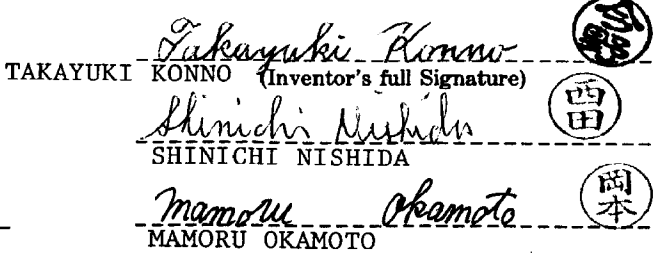 Takayuki Konno
TAKAYUKI KONNO (Inventor's full Signature)
Shinichi Nishida 西田
SHINICHI NISHIDA
Mamoru Okamoto 岡本
MAMORU OKAMOTO